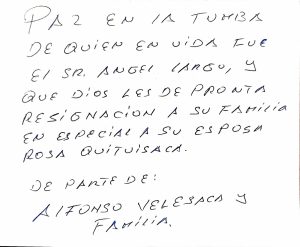 PAZ EN LA TUMBA
DE QUIEN EN VIDA FUE
EL SR. ANGEL LARGO, Y
QUE DIOS LES DE PRONTA
RESIGNACION A SU FAMILIA
EN ESPECIAL A SU ESPOSA
ROSA QUITUISACA.
DE PARTE DE:
ALFONSO VELESACA Y
FAMILIA.